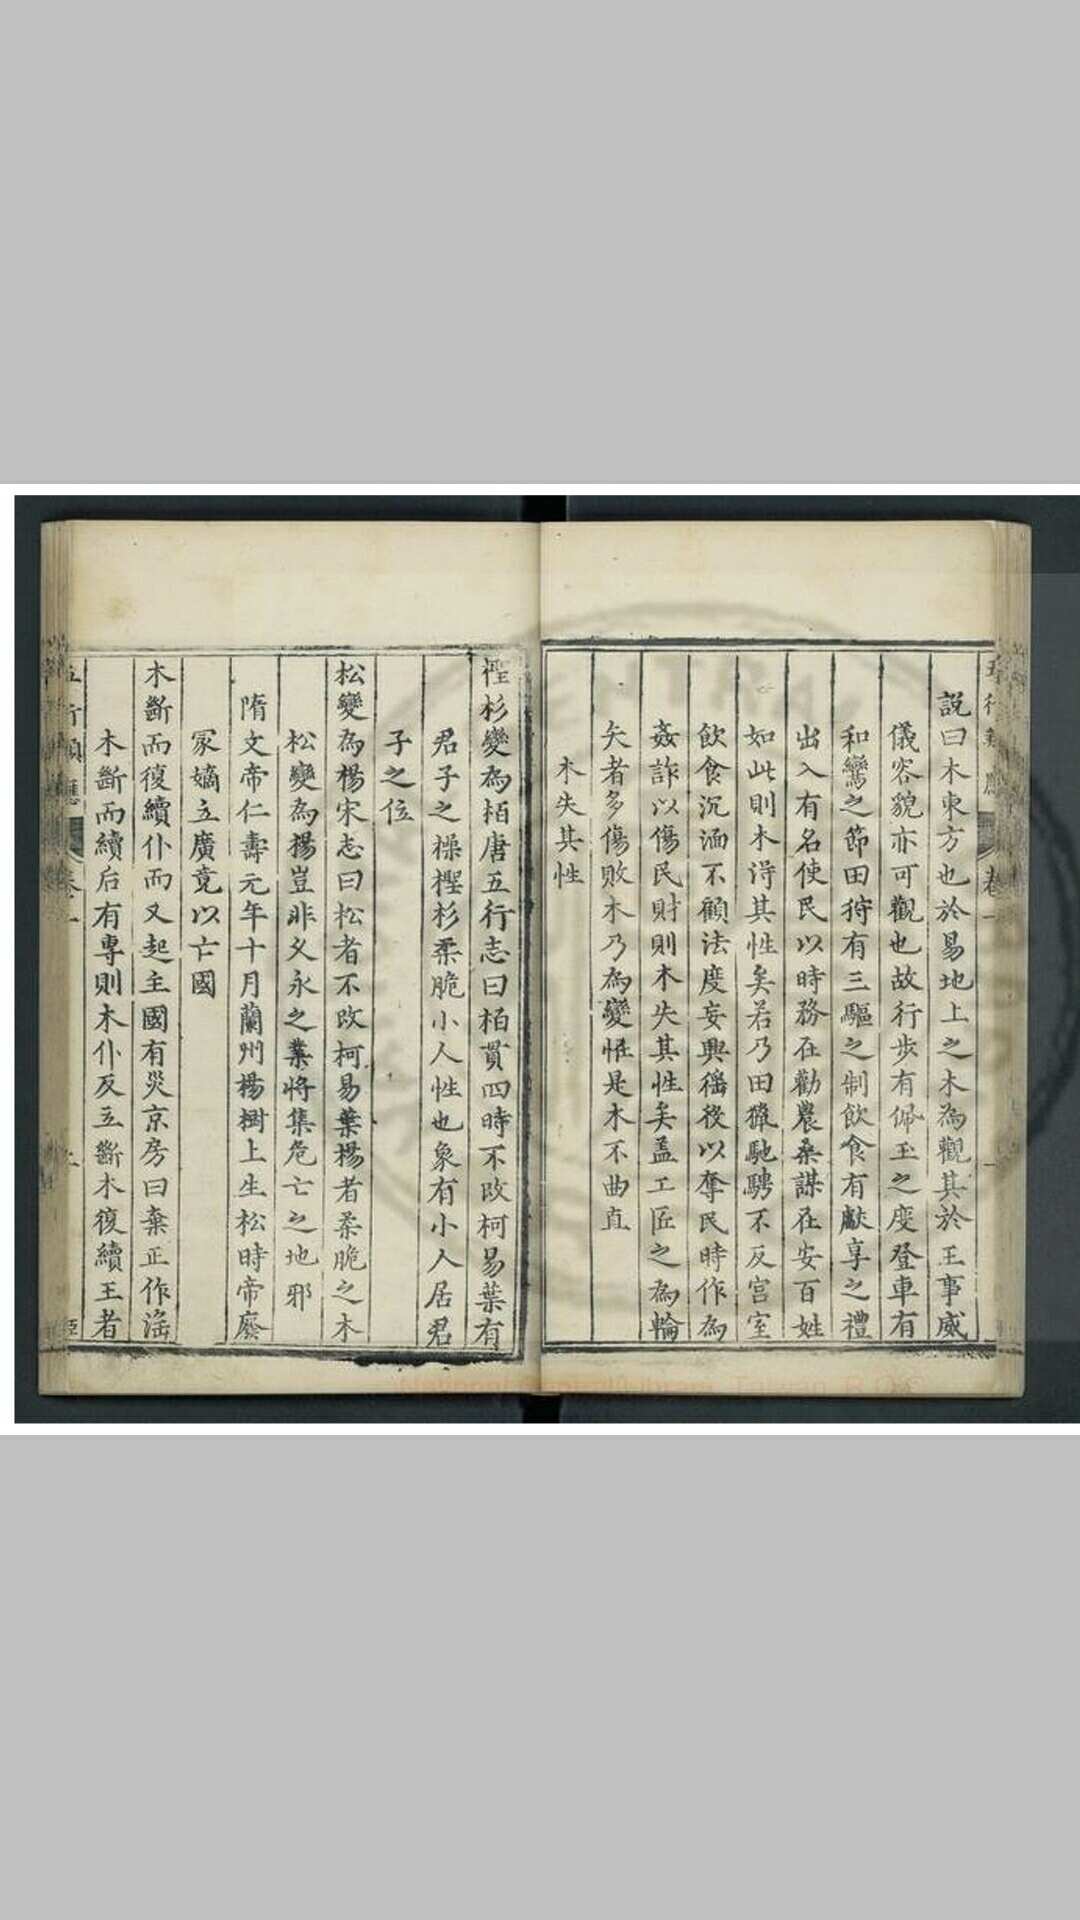 說曰木東方也於易地上之木為觀其於王事威
儀容貌亦可觀也故行步有佩玉之度登車有
和鸞之節田狩有三驅之制飲食有獻享之禮
出入有名使民以時務在勸農桑謀在安百姓
如此則木得其性矣若乃田獵馳騁不反宮室
飲食沉湎不顧法度妄興徭役以奪民時作為
姦詐以傷民財則木失其性矣蓋工匠之為輪
矢者多傷敗木乃為變恠是木不曲直
木失其性
檉杉變為栢唐五行志曰栢貫四時不改柯易葉有
君子之操檉杉柔脆小人性也象有小人居君
子之位
松變為楊宋志曰松者不改柯易葉楊者柔脆之木
松變為楊豈非乂永之業將集危亡之地邪
隋文帝仁壽元年十月蘭州楊樹上生松時帝廢
冢嫡立廣竟以亡國
木斷而復續仆而又起主國有災京房曰棄正作滛
木斷而續后有專則木仆反立斷木復續王者